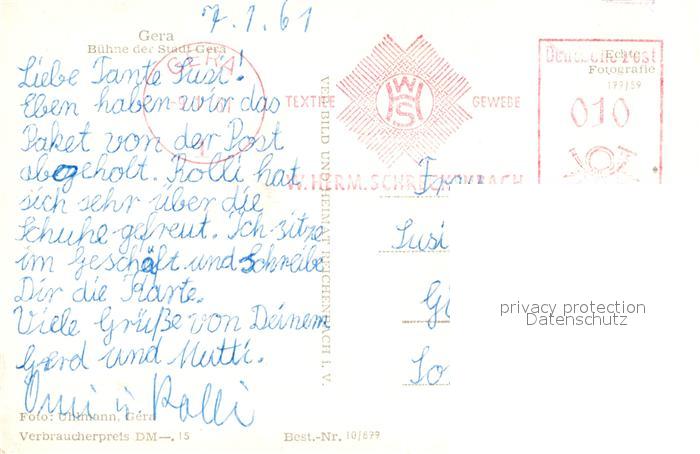 7.1.61
Gera
Bühne der Stadt Gera
Liebe Tante Susi!
Eben haben wir das
Paket von der Post
abgeholt. Rolli hat
sich sehr über die
Schuhe gefreut. Ich sitze
im Geschäft und schreibe
Dir die Karte.
Viele Grüße von Deinem
Gerd und Mutti.
Omi u. Rolli
Foto: Uhlmann, Gera
Verbraucherpreis DM —.15
Best.-Nr. 10/899
GERA
TEXTIL
WHS
GEWEBE
W. HERM. SCHRECKENBACH
VERLAG BILD UND HEIMAT REICHENBACH I. V.
Deutsche Post
Echte
Fotografie
199/59
010
Frau
Susi
Gi
So
privacy protection
Datenschutz